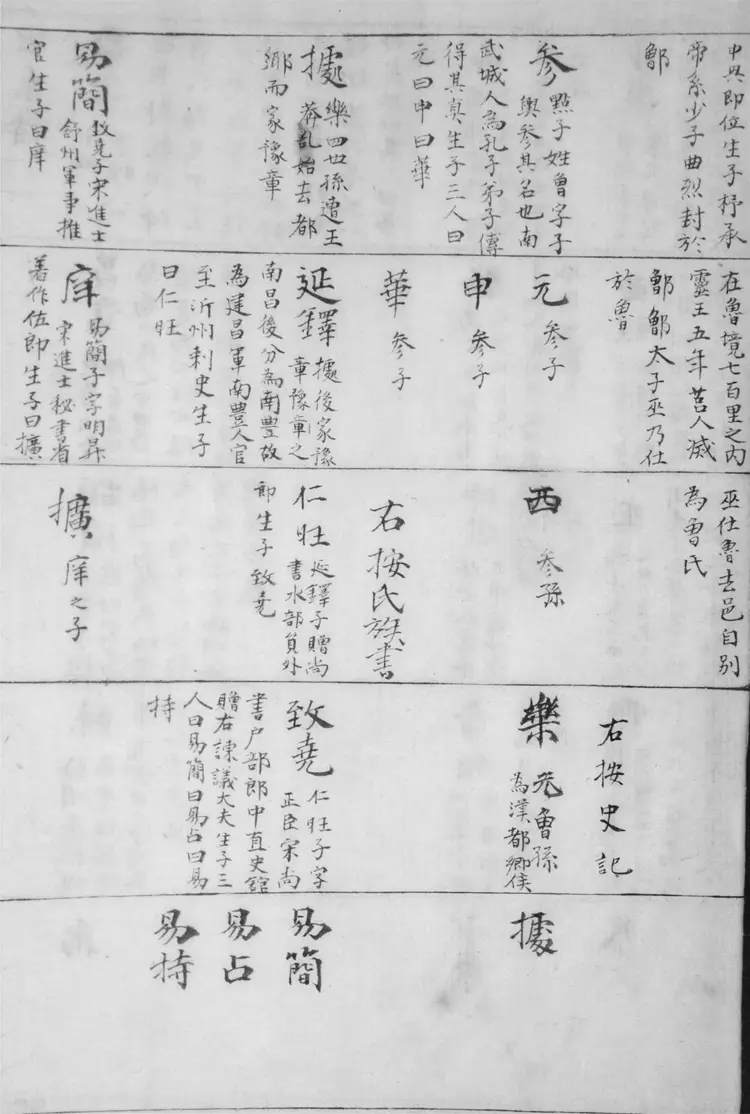 中興即位生子杼承
帝系少子曲烈封於
鄫
叅 點子姓曾字子
輿叅其名也南
武城人為孔子弟子傳
得其真生子三人曰
元曰申曰華
據 樂四世孫遭王
莽亂始去都
鄉而家豫章
易簡 致堯子宋進士
舒州軍事推
官生子曰庠
在魯境七百里之内
靈王五年莒人滅
鄫鄫太子巫乃仕
於魯
元 叅子
申 叅子
華 叅子
延鐸 據後家豫
章豫章之
南昌後分為南豐故
為建昌軍南豐人官
至沂州刺史生子
曰仁旺
庠 易簡子字明昇
宋進士秘書省
著作佐郎生子曰擴
巫仕魯去邑自别
為曾氏
西 叅孫
右按氏族書
仁旺 延鐸子贈尚
書水部員外
郎生子致堯
擴 庠之子
右按史記
樂 元曾孫
為漢都鄉侯
致堯 仁旺子字
正臣宋尚
書户部郎中直史館
贈右諫議大夫生子三
人曰易簡曰易占曰易
持
據
易簡
易占
易持